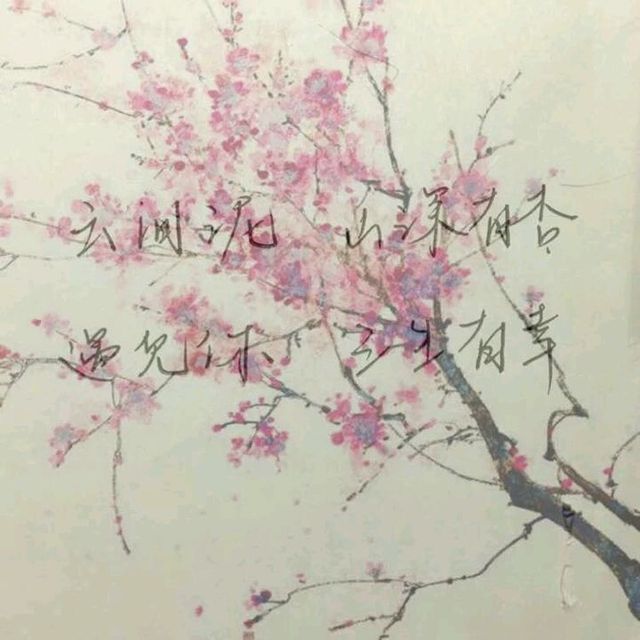 云 山深有杏
遇见你 三生有幸